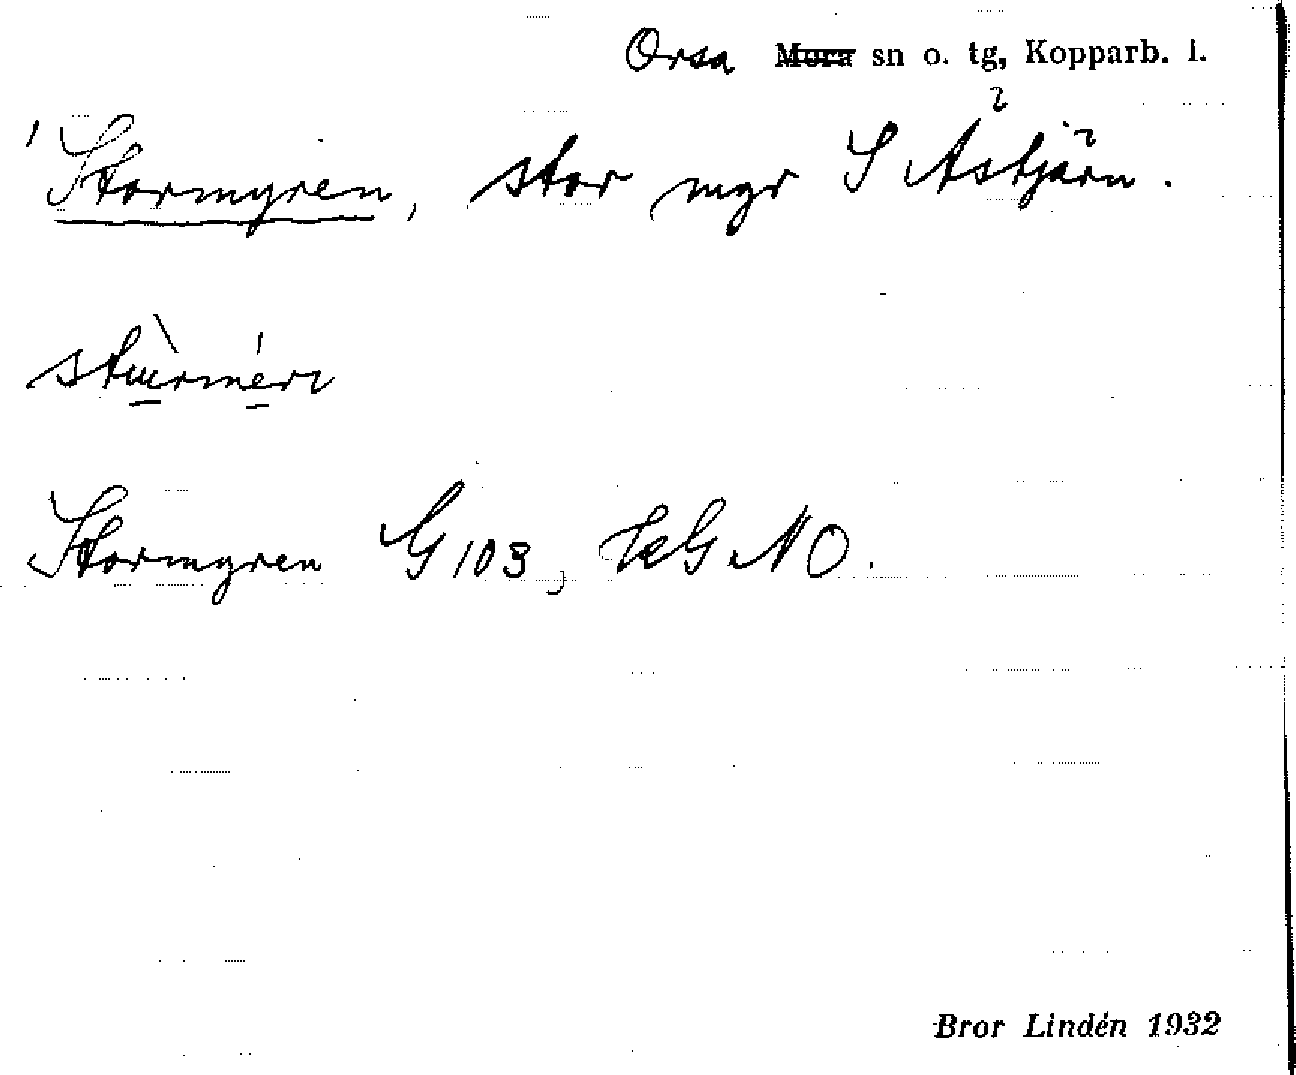 Orsa ~~Mora~~ sn o. tg, Kopparb. l.
Stormyren, stor myr S Åstjärn.
stùrméri
Stormyren G103, HGNO.
Bror Lindén 1932